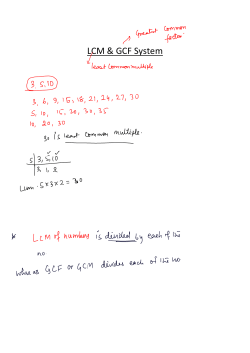 Greatest Common
factor
LCM & GCF System
least common multiple
3, 5, 10
3, 6, 9, 15, 18, 21, 24, 27, 30
5, 10, 15, 20, 30, 35
10, 20, 30
30 is least common multiple.
5 | 3, 5, 10
3, 1, 2
Lcm: 5 x 3 x 2 = 30
* LCM of numbers is divided by each of the
no
whereas GCF or GCM divides each of the no